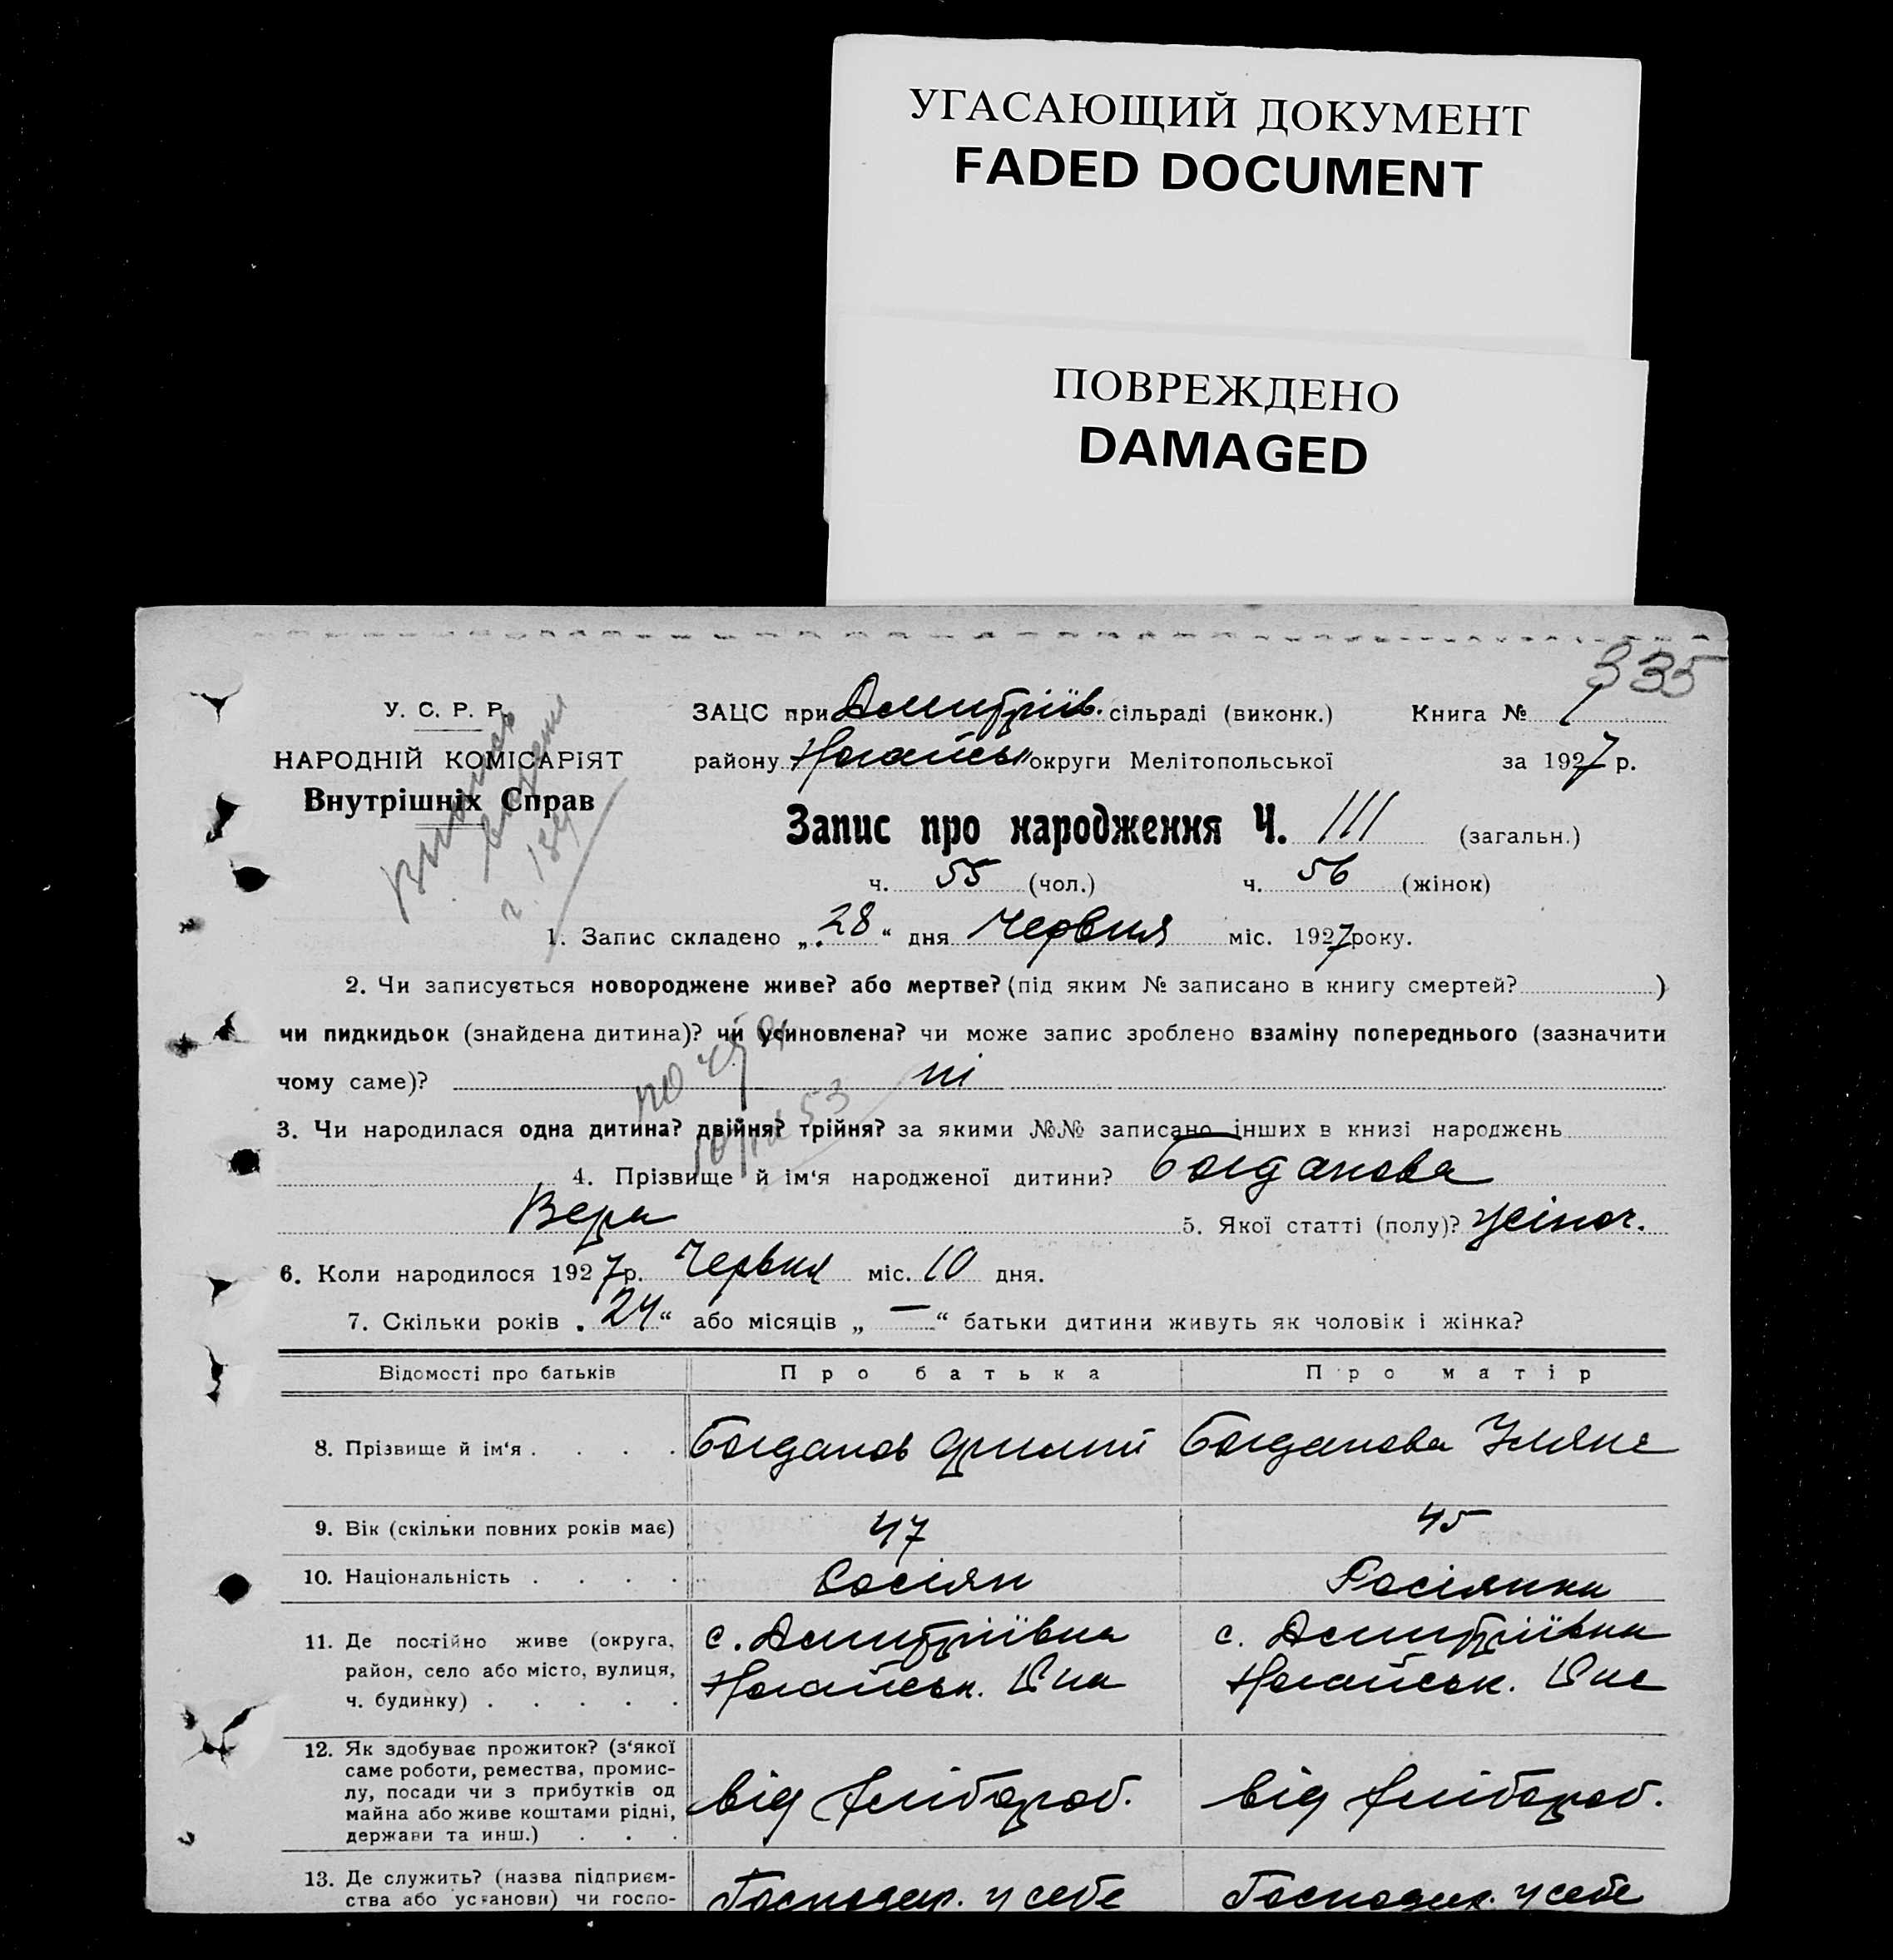 УГАСАЮЩИЙ ДОКУМЕНТ
FADED DOCUMENT
ПОВРЕЖДЕНО
DAMAGED
335
У. С. Р. Р.
НАРОДНІЙ КОМІСАРІЯТ
Внутрішніх Справ
ЗАЦС при Дмитріїв. сільраді (виконк.) Книга № 1
району Ногайськ округи Мелітопольської за 1927 р.
Запис про народження Ч. 111 (загальн.)
ч. 55 (чол.) ч. 56 (жінок)
1. Запис складено „28“ дня Червня міс. 1927 року.
2. Чи записується новороджене живе? або мертве? (під яким № записано в книгу смертей? )
чи пидкидьок (знайдена дитина)? чи усиновлена? чи може запис зроблено взаміну попереднього (зазначити
чому саме)? ні
3. Чи народилася одна дитина? двійня? трійня? за якими №№ записано інших в книзі народжень
4. Прізвище й ім‘я народженої дитини? Богданова
Вера 5. Якої статті (полу)? жіноч.
6. Коли народилося 1927 р. Червня міс. 10 дня.
7. Скільки років „24“ або місяців „—“ батьки дитини живуть як чоловік і жінка?
Відомості про батьків Про батька Про матір
8. Прізвище й ім‘я . . . . Богданов Богданова Уляна
9. Вік (скільки повних років має) 47 45
10. Національність . . . . Росіян Росіянка
11. Де постійно живе (округа, с. Дмитріївка с. Дмитріївка
район, село або місто, вулиця, Ногайськ. Ногайськ.
ч. будинку) . . . . .
12. Як здобуває прожиток? (з‘якої
саме роботи, ремества, промис-
лу, посади чи з прибутків од від хлібороб. від хлібороб.
майна або живе коштами рідні,
держави та инш.) . . .
13. Де служить? (назва підприєм-
ства або установи) чи госпо- Господар. у себе Господар. у себе